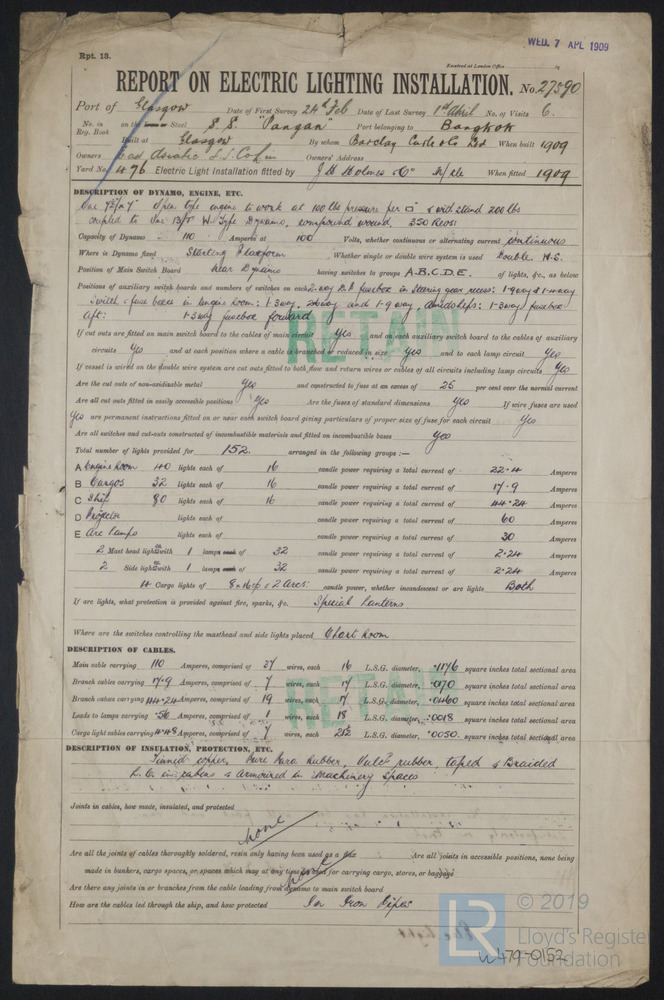 WED. 7 APL 1909
Rpt. 13.
Received at London Office
REPORT ON ELECTRIC LIGHTING INSTALLATION. No. 27590
Port of Glasgow Date of First Survey 24th Feb Date of Last Survey 1st April No. of Visits 6.
No. in Reg. Book on the Steel S.S. "Pangan" Port belonging to Bangkok
Built at Glasgow By whom Barclay Curle & Co Ltd When built 1909
Owners East Asiatic S.S. Co Owners' Address
Yard No. 476 Electric Light Installation fitted by J H Holmes & Co N/cle When fitted 1909
DESCRIPTION OF DYNAMO, ENGINE, ETC.
One open type engine to work at 100 lbs pressure per □" & withstand 200 lbs
coupled to one Type Dynamo, compound wound, 350 Revs:
Capacity of Dynamo 110 Amperes at 100 Volts, whether continuous or alternating current Continuous
Where is Dynamo fixed Starting Platform Whether single or double wire system is used Double.
Position of Main Switch Board Near Dynamo having switches to groups A.B.C.D.E. of lights, &c., as below
Positions of auxiliary switch boards and numbers of switches on each 2-way D.P. fusebox in Steering gear recess: 1-9way & 1-4way
Switch & fuse boxes in Engine Room: 1-3way, and 1-9 way, Amidships: 1-3way fusebox
aft: 1-3way fusebox forward
If cut outs are fitted on main switch board to the cables of main circuit Yes and on each auxiliary switch board to the cables of auxiliary
circuits Yes and at each position where a cable is branched or reduced in size Yes and to each lamp circuit Yes
If vessel is wired on the double wire system are cut outs fitted to both flow and return wires or cables of all circuits including lamp circuits Yes
Are the cut outs of non-oxidizable metal Yes and constructed to fuse at an excess of 25 per cent over the normal current
Are all cut outs fitted in easily accessible positions Yes Are the fuses of standard dimensions Yes If wire fuses are used
Yes are permanent instructions fitted on or near each switch board giving particulars of proper size of fuse for each circuit Yes
Are all switches and cut-outs constructed of incombustible materials and fitted on incombustible bases Yes
RETAIN
Total number of lights provided for 152. arranged in the following groups :—
A Engine Room 40 lights each of 16 candle power requiring a total current of 22.4 Amperes
B Cargos 32 lights each of 16 candle power requiring a total current of 17.9 Amperes
C Ship 80 lights each of 16 candle power requiring a total current of 44.24 Amperes
D Projector lights each of candle power requiring a total current of 60 Amperes
E Arc Lamps lights each of candle power requiring a total current of 30 Amperes
2 Mast head lights with 1 lamps each of 32 candle power requiring a total current of 2.24 Amperes
2 Side lights with 1 lamps each of 32 candle power requiring a total current of 2.24 Amperes
4 Cargo lights of & 2 Arcs: candle power, whether incandescent or arc lights Both
If arc lights, what protection is provided against fire, sparks, &c. Special Lanterns
Where are the switches controlling the masthead and side lights placed Chart Room
DESCRIPTION OF CABLES.
Main cable carrying 110 Amperes, comprised of 37 wires, each 16 L.S.G. diameter, .1176 square inches total sectional area
Branch cables carrying 17.9 Amperes, comprised of 7 wires, each 17 L.S.G. diameter, square inches total sectional area
Branch cables carrying 44.24 Amperes, comprised of 19 wires, each 17 L.S.G. diameter, .0460 square inches total sectional area
Leads to lamps carrying .56 Amperes, comprised of 1 wires, each 18 L.S.G. diameter, .0018 square inches total sectional area
Cargo light cables carrying 4.48 Amperes, comprised of 7 wires, each L.S.G. diameter, .0050 square inches total sectional area
RETAIN
DESCRIPTION OF INSULATION, PROTECTION, ETC.
Tinned copper, Pure Para Rubber, Vulcd rubber, taped & Braided
L.C. in cabins & armoured in Machinery Spaces
Joints in cables, how made, insulated, and protected
None
Are all the joints of cables thoroughly soldered, resin only having been used as a flux Are all joints in accessible positions, none being
made in bunkers, cargo spaces, or spaces which may at any time be used for carrying cargo, stores, or baggage
None
Are there any joints in or branches from the cable leading from dynamo to main switch board
How are the cables led through the ship, and how protected In Iron Pipes
LR
© 2019
Lloyd's Register
Foundation
W479-0152